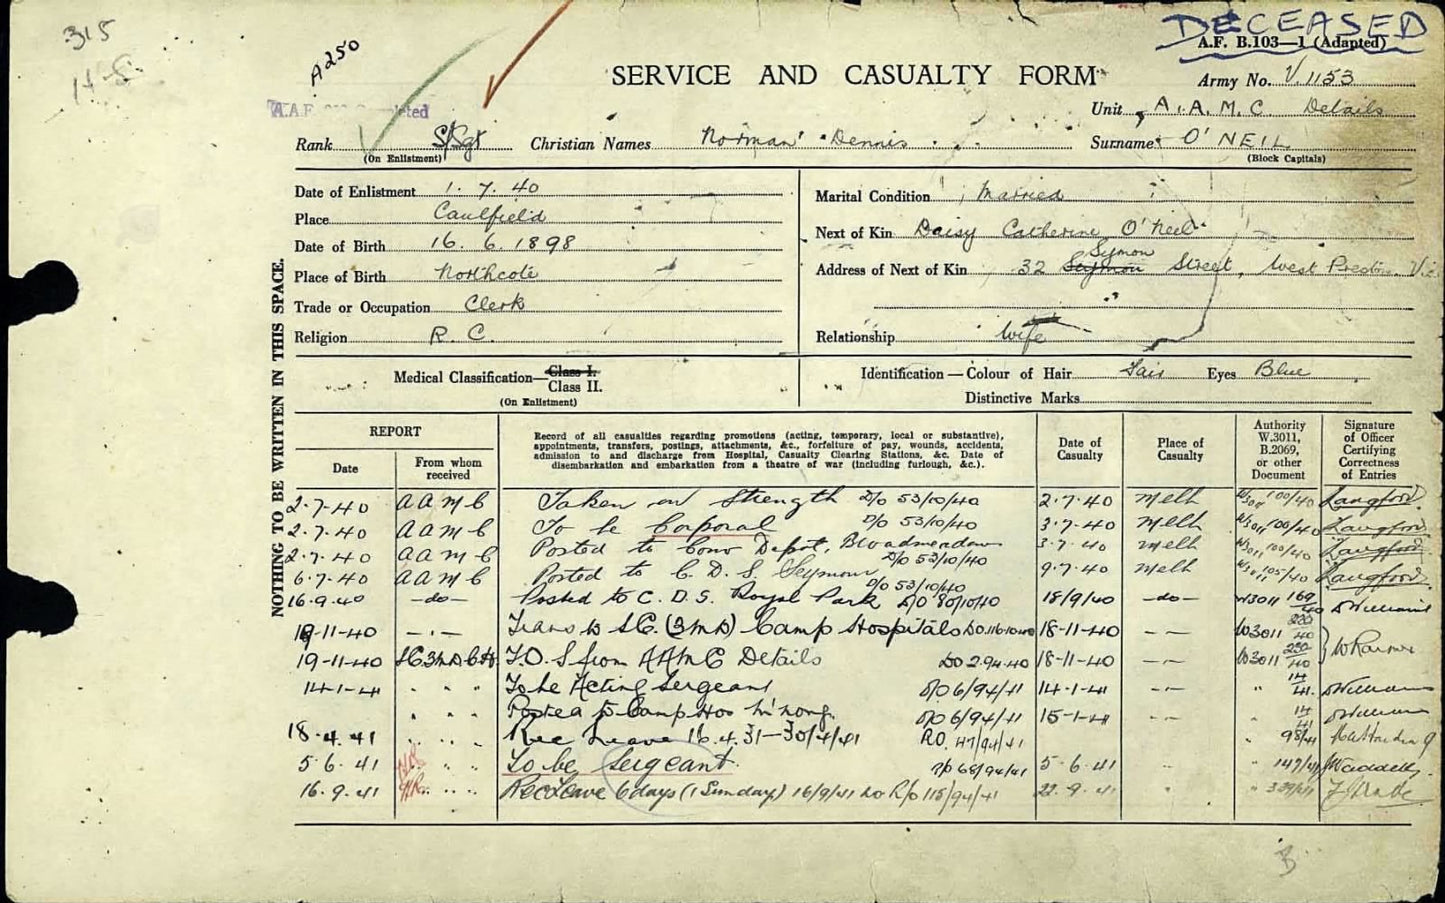 315
A250
DECEASED
A.F. B.103—1 (Adapted)
SERVICE AND CASUALTY FORM
Army No. V.1153
Unit A.A.M.C. Details
Rank S/Sgt Christian Names Norman Dennis Surname O'NEIL
(On Enlistment) (Block Capitals)
Date of Enlistment 1.7.40
Place Caulfield
Date of Birth 16.6.1898
Place of Birth Northcote
Trade or Occupation Clerk
Religion R.C.
Marital Condition Married
Next of Kin Daisy Catherine O'Neil
Symon
Address of Next of Kin 32 Seymon Street, West Preston. Vic
Relationship Wife
NOTHING TO BE WRITTEN IN THIS SPACE.
Medical Classification—Class I.
Class II.
(On Enlistment)
Identification—Colour of Hair Fair Eyes Blue
Distinctive Marks
REPORT
Date
From whom received
Record of all casualties regarding promotions (acting, temporary, local or substantive),
appointments, transfers, postings, attachments, &c., forfeiture of pay, wounds, accidents,
admission to and discharge from Hospital, Casualty Clearing Stations, &c. Date of
disembarkation and embarkation from a theatre of war (including furlough, &c.).
Date of Casualty
Place of Casualty
Authority W.3011, B.2069, or other Document
Signature of Officer Certifying Correctness of Entries
2.7.40 AAMC Taken on Strength D/o 53/10/40 2.7.40 Melb W3011 100/40 Langford
2.7.40 AAMC To be Corporal D/o 53/10/40 3.7.40 Melb W3011 100/40 Langford
2.7.40 AAMC Posted to Conv Depot, Broadmeadows D/o 53/10/40 3.7.40 Melb W3011 100/40 Langford
6.7.40 AAMC Posted to C.D.S. Seymour D/o 53/10/40 9.7.40 Melb W3011 105/40 Langford
16.9.40 —do— Posted to C.D.S. Royal Park D/O 80/10/40 18/9/40 —do— W3011 169/40 Williams
19-11-40 Trans to S.C. (3MD) Camp Hospitals DO.116.10.40 18-11-40 W3011 230/40
19-11-40 SC3MDCH T.O.S from AAMC Details DO 2.94.40 18-11-40 W3011 230/40
14-1-41 " " " To be Acting Sergeant D/O 6/94/41 14-1-41 " 14/41 Williams
" " " Posted to Camp Hos D/O 6/94/41 15-1-41 " 14/41 Williams
18.4.41 " " " Rec Leave 16.4.31—30/4/41 R.O. 47/94/41 " 98/41
5.6.41 " " To be Sergeant R/O 68/94/41 5.6.41 " " 147/41 Waddell
16.9.41 " " Rec Leave 6 days (1 Sunday) 16/9/41 R/o 115/94/41 22.9.41 " "
B